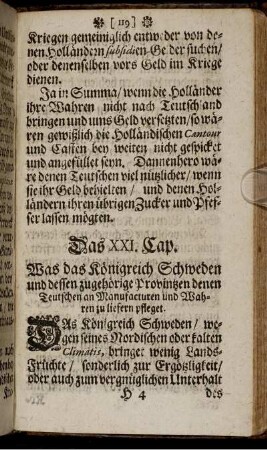 [ 119 ]
Kriegen gemeiniglich entweder von de-
nen Holländern subsidien-Gelder suchen/
oder denenselben vors Geld im Kriege
dienen.
Ja in Summa/ wenn die Holländer
ihre Wahren nicht nach Teutschland
bringen und uns Geld versetzten/ so wä-
ren gewißlich die Holländischen Cantour
und Casten bey weiten nicht gespicket
und angefüllet seyn. Dannenhero wä-
re denen Teutschen viel nützlicher/ wenn
sie ihr Geld behielten / und denen Hol-
ländern ihren übrigen Zucker und Pfef-
fer lassen mögten.
Das XXI. Cap.
Was das Königreich Schweden
und dessen zugehörige Provintzen denen
Teutschen an Manufacturen und Wah-
ren zu liefern pfleget.
DAs Königreich Schweden/ we-
gen seines Nordischen oder kalten
Climatis, bringet wenig Lands-
Früchte/ sonderlich zur Ergötzligkeit/
oder auch zum vergnüglichen Unterhalt
H 4 des